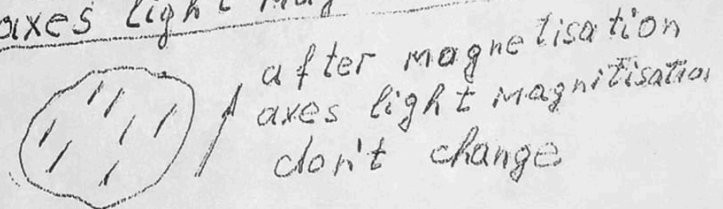 axes light
after magnetisation
axes light magnitisation
don't change